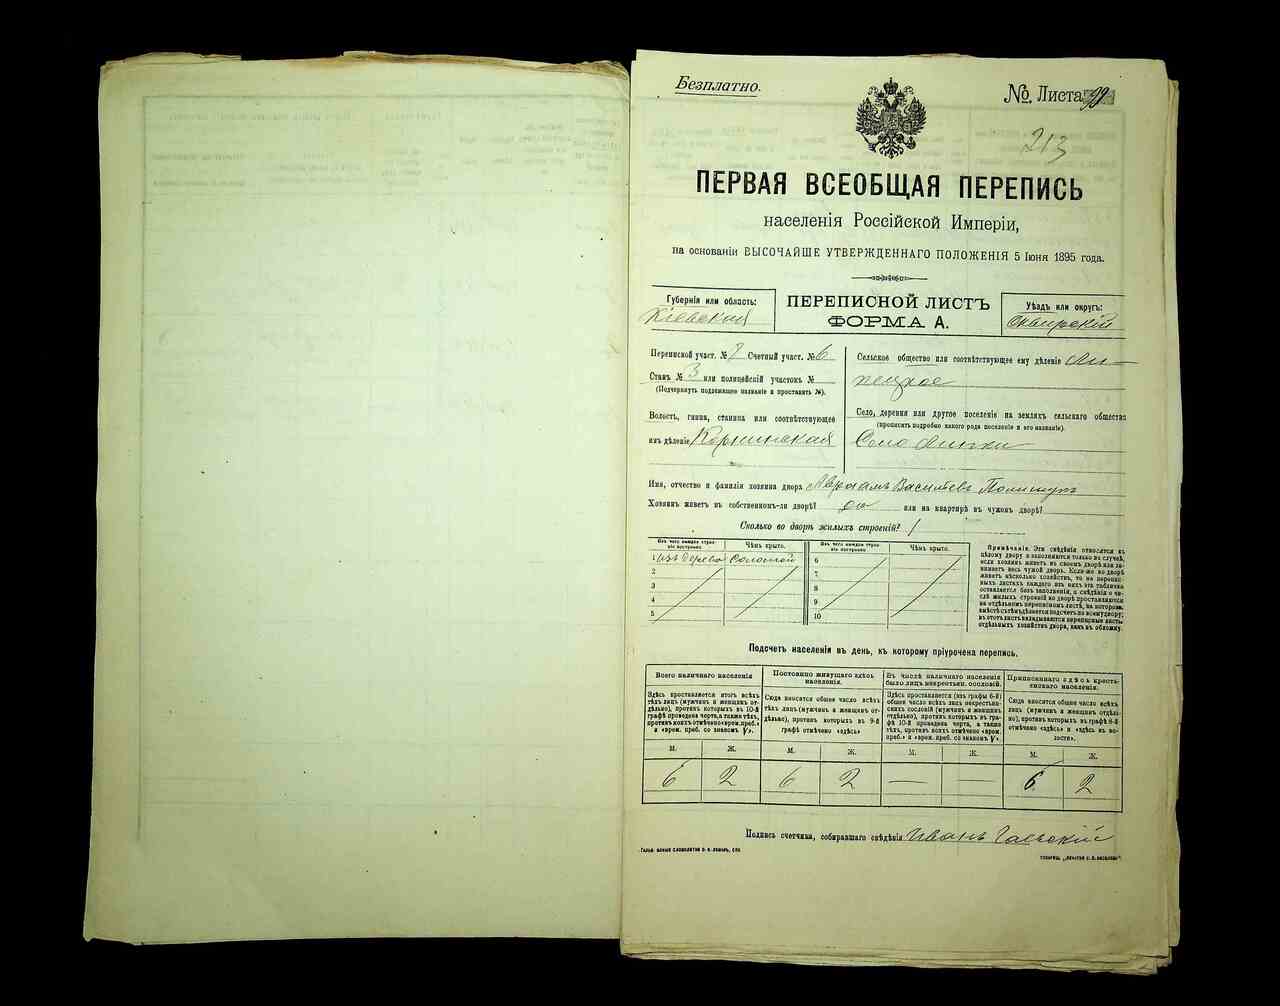 Безплатно.
№ Листа 99
213
ПЕРВАЯ ВСЕОБЩАЯ ПЕРЕПИСЬ
населенія Россійской Имперіи,
на основаніи ВЫСОЧАЙШЕ УТВЕРЖДЕННАГО ПОЛОЖЕНІЯ 5 Іюня 1895 года.
Губернія или область:
Кіевская
ПЕРЕПИСНОЙ ЛИСТЪ
ФОРМА А.
Уѣздъ или округъ:
Сквирскій
Переписной участ. № 7 Счетный участ. № 6
Станъ № 3 или полицейскій участокъ №
(Подчеркнуть подлежащее названіе и проставить №).
Волость, гмина, станица или соотвѣтствующее
имъ дѣленіе Корнинская
Сельское общество или соотвѣтствующее ему дѣленіе Ли-
пецкое
Село, деревня или другое поселеніе на земляхъ сельскаго общества
(прописать подробно какого рода поселеніе и его названіе).
Село Липки
Имя, отчество и фамилія хозяина двора Авраамъ Васильевъ Полищукъ
Хозяинъ живетъ въ собственномъ-ли дворѣ? да или на квартирѣ въ чужомъ дворѣ?
Сколько во дворѣ жилыхъ строеній? 1
Изъ чего каждое строеніе построено.
Чѣмъ крыто.
Изъ чего каждое строеніе построено.
Чѣмъ крыто.
1 изъ дерева соломой
2
3
4
5
6
7
8
9
10
Примѣчаніе. Эти свѣдѣнія относятся къ
цѣлому двору и заполняются только въ случаѣ,
если хозяинъ живетъ въ своемъ дворѣ или занимаетъ весь чужой дворъ. Если-же во дворѣ
живетъ нѣсколько хозяйствъ, то на переписныхъ листахъ каждаго изъ нихъ эта табличка
оставляется безъ заполненія, а свѣдѣнія о числѣ жилыхъ строеній во дворѣ проставляются
на отдѣльномъ переписномъ листѣ, на которомъ
вмѣстѣ съ тѣмъ дѣлается подсчетъ по всему двору;
въ этотъ листъ вкладываются переписные листы
отдѣльныхъ хозяйствъ двора, какъ въ обложку.
Подсчетъ населенія въ день, къ которому пріурочена перепись.
Всего наличнаго населенія
Здѣсь проставляется итогъ всѣхъ
тѣхъ лицъ (мужчинъ и женщинъ отдѣльно), противъ которыхъ въ 10-й
графѣ проведена черта, а также тѣхъ,
противъ коихъ отмѣчено «врем. преб.»
и «врем. преб. со знакомъ V».
Постоянно живущаго здѣсь
населенія.
Сюда вносится общее число всѣхъ
тѣхъ лицъ (мужчинъ и женщинъ отдѣльно), противъ которыхъ въ 9-й
графѣ отмѣчено «здѣсь»
Въ числѣ наличнаго населенія
было лицъ некрестьян. сословій.
Здѣсь проставляется (изъ графы 6-й)
общее число всѣхъ лицъ некрестьянскихъ сословій (мужчинъ и женщинъ
отдѣльно), противъ которыхъ въ графѣ 10-й проведена черта, а также
тѣхъ, противъ коихъ отмѣчено «врем.
преб.» и «врем. преб. со знакомъ V».
Приписаннаго здѣсь крестьянскаго населенія.
Сюда вносится общее число всѣхъ
лицъ (мужчинъ и женщинъ отдѣльно), противъ которыхъ въ графѣ 8-й
отмѣчено «здѣсь» и «здѣсь въ волости».
М. Ж. М. Ж. М. Ж. М. Ж.
6 2 6 2 — — 6 2
Подпись счетчика, собиравшаго свѣдѣнія Иванъ Гаевскій